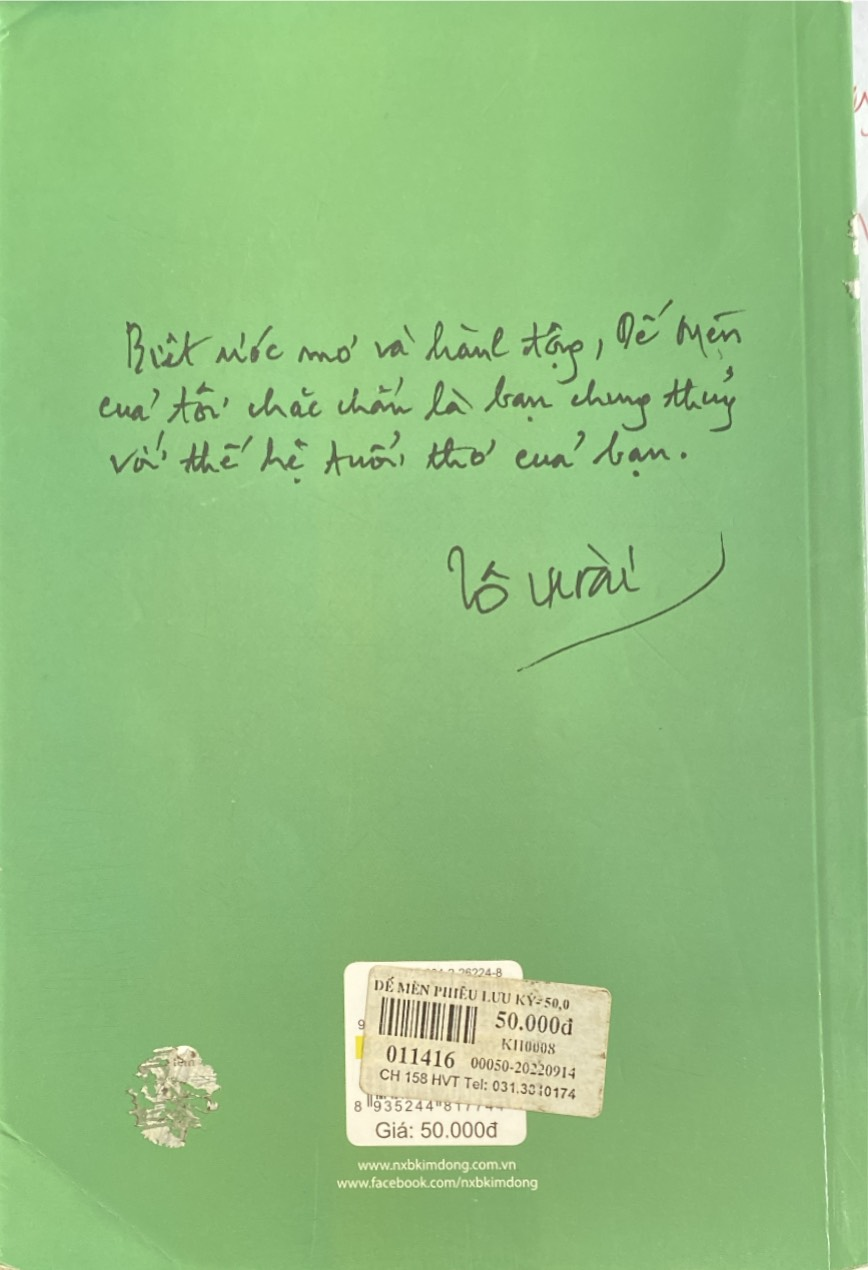 Biết ước mơ và hành động, Dế Mèn
của tôi chắc chắn là bạn chung thủy
với thế hệ tuổi thơ của bạn.
Tô Hoài
26224-8
DẾ MÈN PHIÊU LƯU KÝ- 50,0
50.000đ
KH0008
011416 00050-20220914
CH 158 HVT Tel: 031.3840174
8 935244 81774
Giá: 50.000đ
www.nxbkimdong.com.vn
www.facebook.com/nxbkimdong